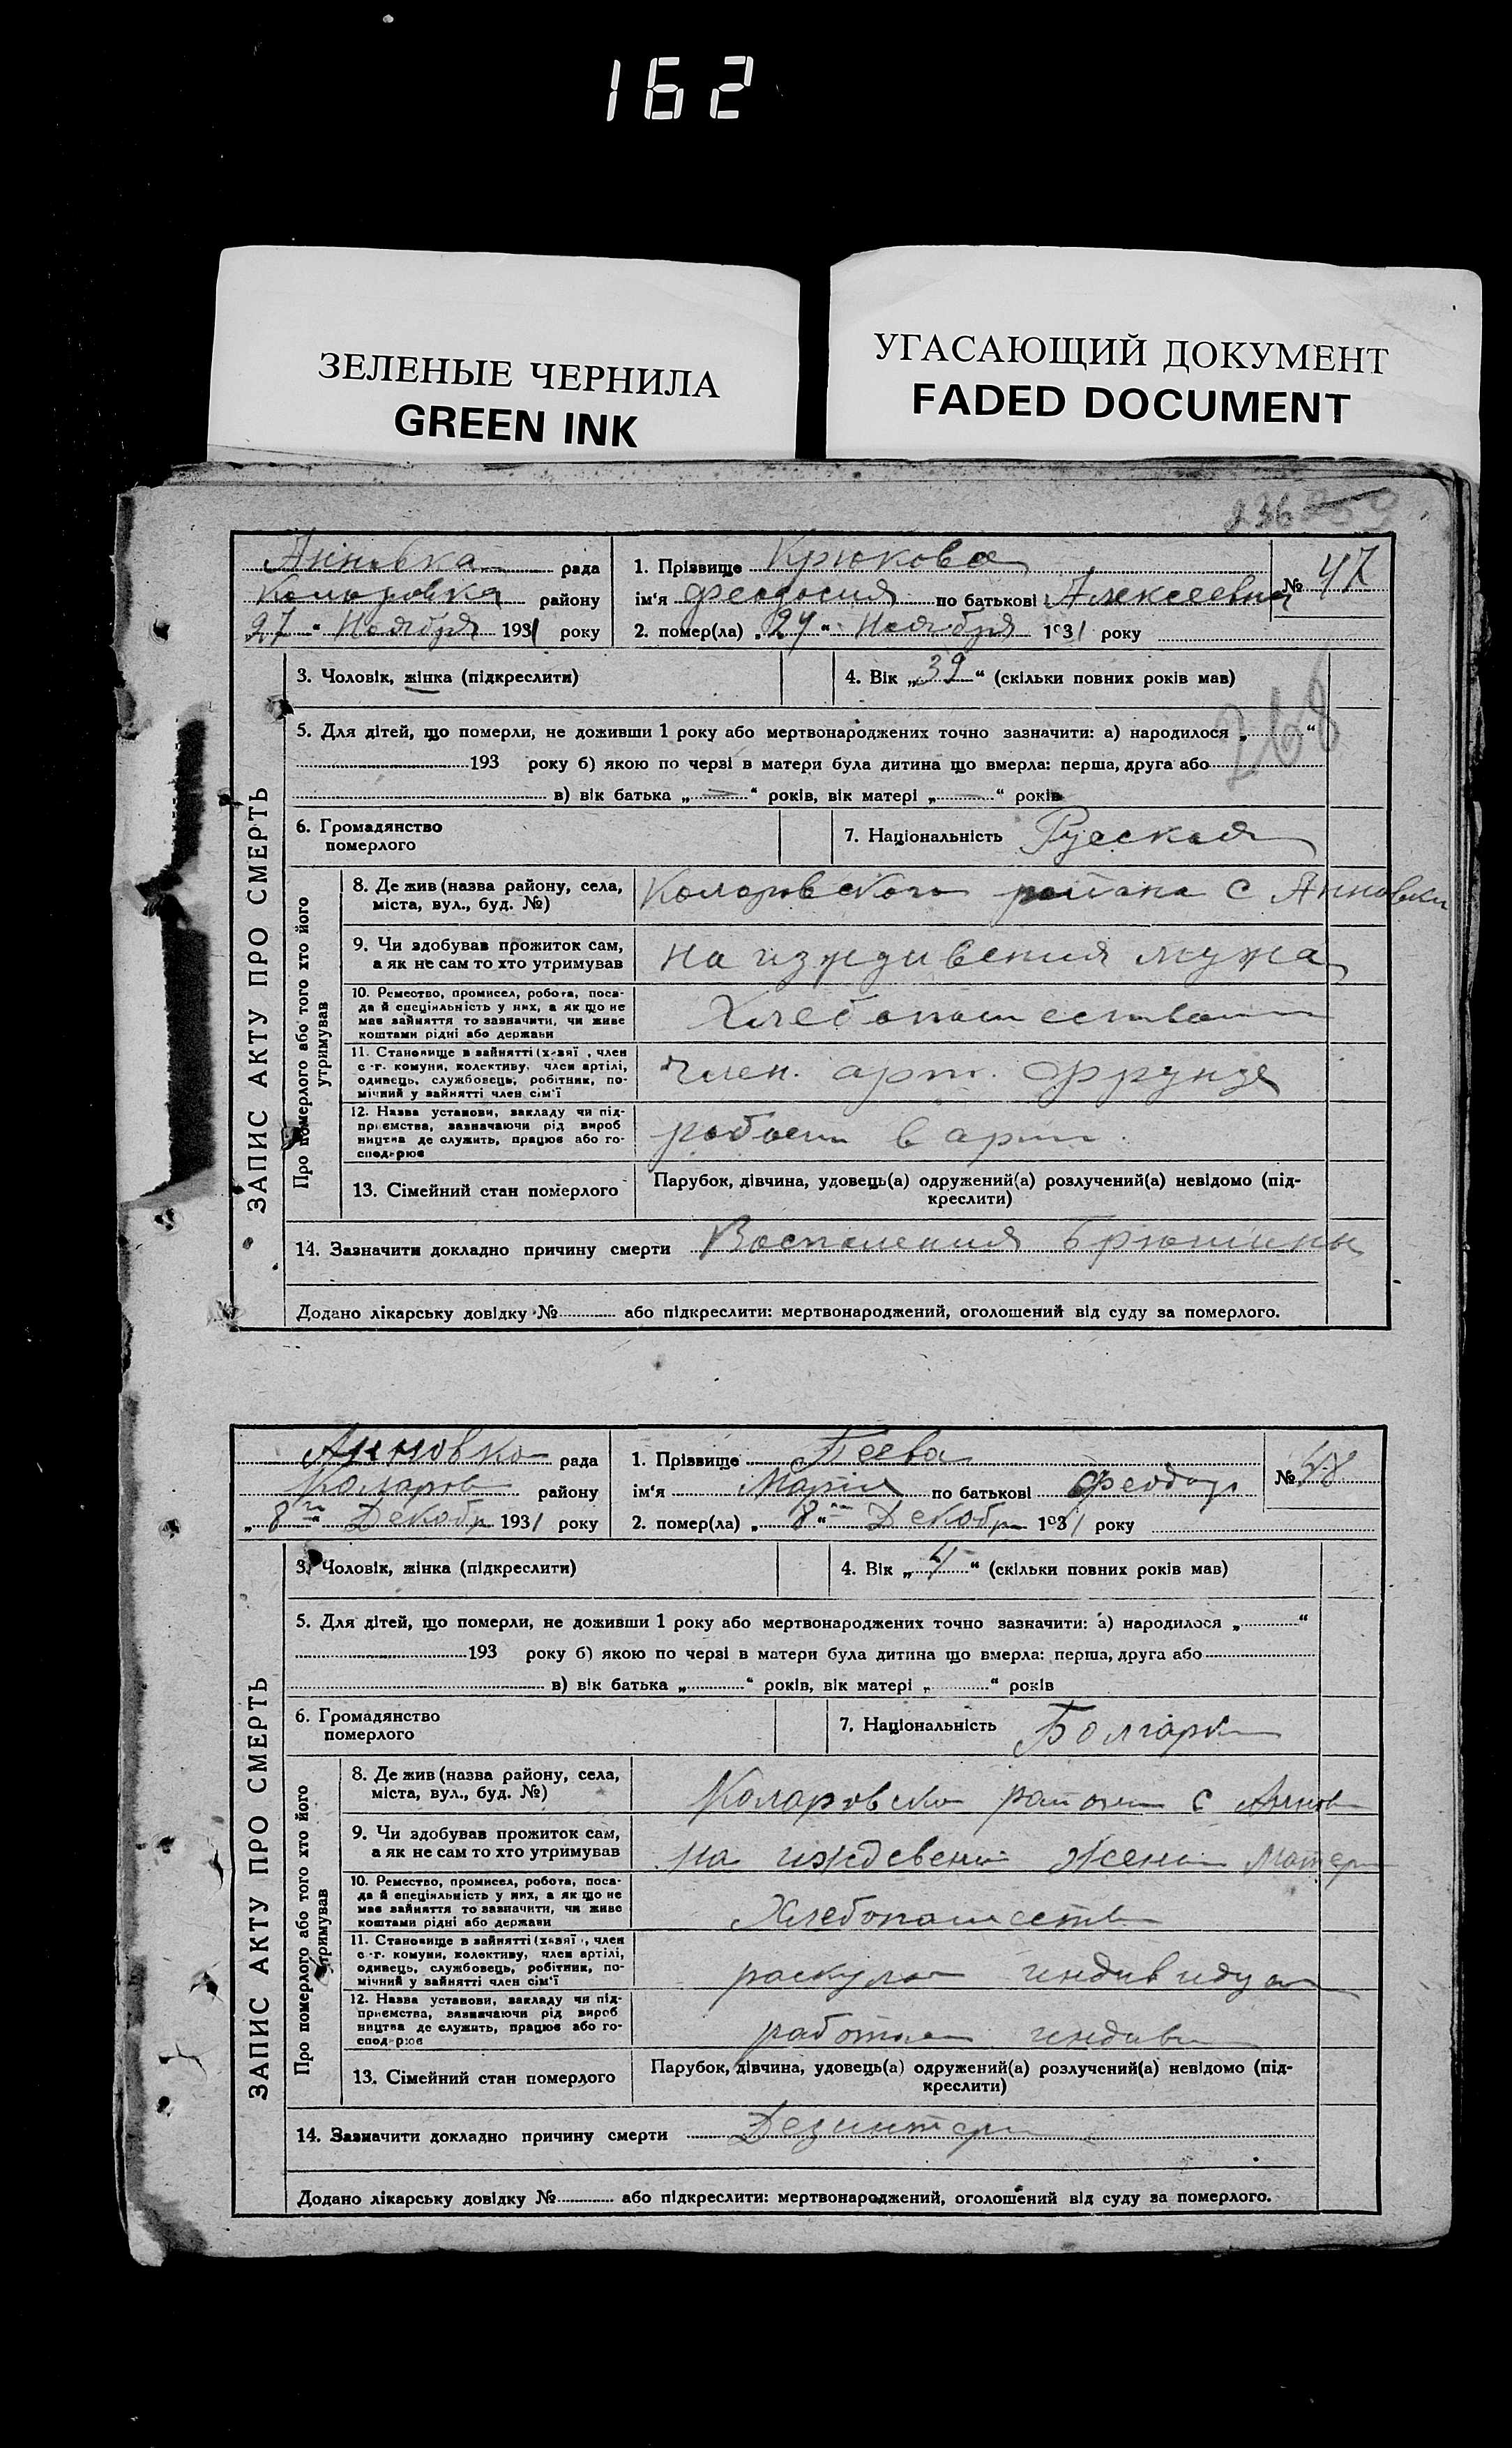 162
ЗЕЛЕНЫЕ ЧЕРНИЛА
GREEN INK
УГАСАЮЩИЙ ДОКУМЕНТ
FADED DOCUMENT
236
ЗАПИС АКТУ ПРО СМЕРТЬ
Анновка рада
району
27 " Ноября 1931 року
1. Прізвище Крюкова
ім'я Феодосия по батькові Алексеевна
2. помер(ла) „ 27 " Ноября 1931 року
№ 47
3. Чоловік, жінка (підкреслити)
4. Вік „ 39 " (скільки повних років мав)
268
5. Для дітей, що померли, не доживши 1 року або мертвонароджених точно зазначити: а) народилося „ "
193 року б) якою по черзі в матери була дитина що вмерла: перша, друга або
в) вік батька „ — " років, вік матері „ — " років
6. Громадянство
померлого
7. Національність Русская
Про померлого або того хто його
утримував
8. Де жив (назва району, села,
міста, вул., буд. №)
Коларовского района с Анновки
9. Чи здобував прожиток сам,
а як не сам то хто утримував
на иждивения мужа
10. Ремество, промисел, робота, поса-
да й спеціяльність у них, а як що не
має зайняття то зазначити, чи живе
коштами рідні або держави
11. Становище в зайнятті (х-вяї , член
с.-г. комуни, колективу, член артілі,
одинець, службовець, робітник, по-
мічний у зайнятті член сім'ї
член. арт. Фрунзе
12. Назва установи, закладу чи під-
приємства, зазначаючи рід вироб
ництва де служить, працює або го-
сподарює
в арт.
13. Сімейний стан померлого
Парубок, дівчина, удовець(а) одружений(а) розлучений(а) невідомо (під-
креслити)
14. Зазначити докладно причину смерти Воспаления Брюшины
Додано лікарську довідку № або підкреслити: мертвонароджений, оголошений від суду за померлого.
ЗАПИС АКТУ ПРО СМЕРТЬ
Анновка рада
Коларов району
„ 8го " Декабр 1931 року
1. Прізвище
ім'я Мария по батькові Феодор
2. помер(ла) „ 8го " Декабр 1931 року
№ 48
3. Чоловік, жінка (підкреслити)
4. Вік „ 4 " (скільки повних років мав)
5. Для дітей, що померли, не доживши 1 року або мертвонароджених точно зазначити: а) народилося „ "
193 року б) якою по черзі в матери була дитина що вмерла: перша, друга або
в) вік батька „ " років, вік матері „ " років
6. Громадянство
померлого
7. Національність Болгарк
Про померлого або того хто його
утримував
8. Де жив (назва району, села,
міста, вул., буд. №)
с Аннов
9. Чи здобував прожиток сам,
а як не сам то хто утримував
на
10. Ремество, промисел, робота, поса-
да й спеціяльність у них, а як що не
має зайняття то зазначити, чи живе
коштами рідні або держави
11. Становище в зайнятті (х-вяї , член
с.-г. комуни, колективу, член артілі,
одинець, службовець, робітник, по-
мічний у зайнятті член сім'ї
12. Назва установи, закладу чи під-
приємства, зазначаючи рід вироб
ництва де служить, працює або го-
сподарює
13. Сімейний стан померлого
Парубок, дівчина, удовець(а) одружений(а) розлучений(а) невідомо (під-
креслити)
14. Зазначити докладно причину смерти Дезинтери
Додано лікарську довідку № або підкреслити: мертвонароджений, оголошений від суду за померлого.